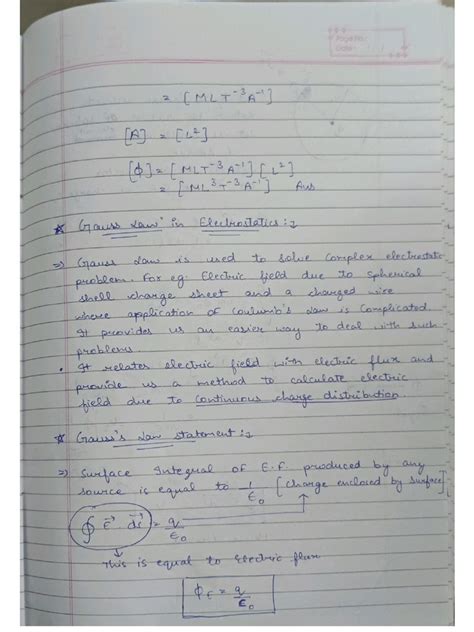 Page No.:
Date:
= [MLT⁻³A⁻¹]
[A] = [L²]
[ϕ] = [MLT⁻³A⁻¹][L²]
= [ML³T⁻³A⁻¹] Ans
* Gauss Law in Electrostatics:↴
⇒) Gauss Law is used to solve complex electrostatic
problem. For eg: Electric field due to spherical
shell charge sheet and a charged wire
where application of Coulumb's Law is complicated.
It provides us an easier way to deal with such
problems
• It relates electric field with electric flux and
provide us a method to calculate electric
field due to continuous charge distribution.
* Gauss's Law statement:↴
⇒) Surface Integral of E.F. produced by any
source is equal to 1/ϵ₀ [charge enclosed by surface]
∮ E⃗ · ds⃗ = q/ϵ₀
This is equal to Electric flux
ϕE = q/ϵ₀